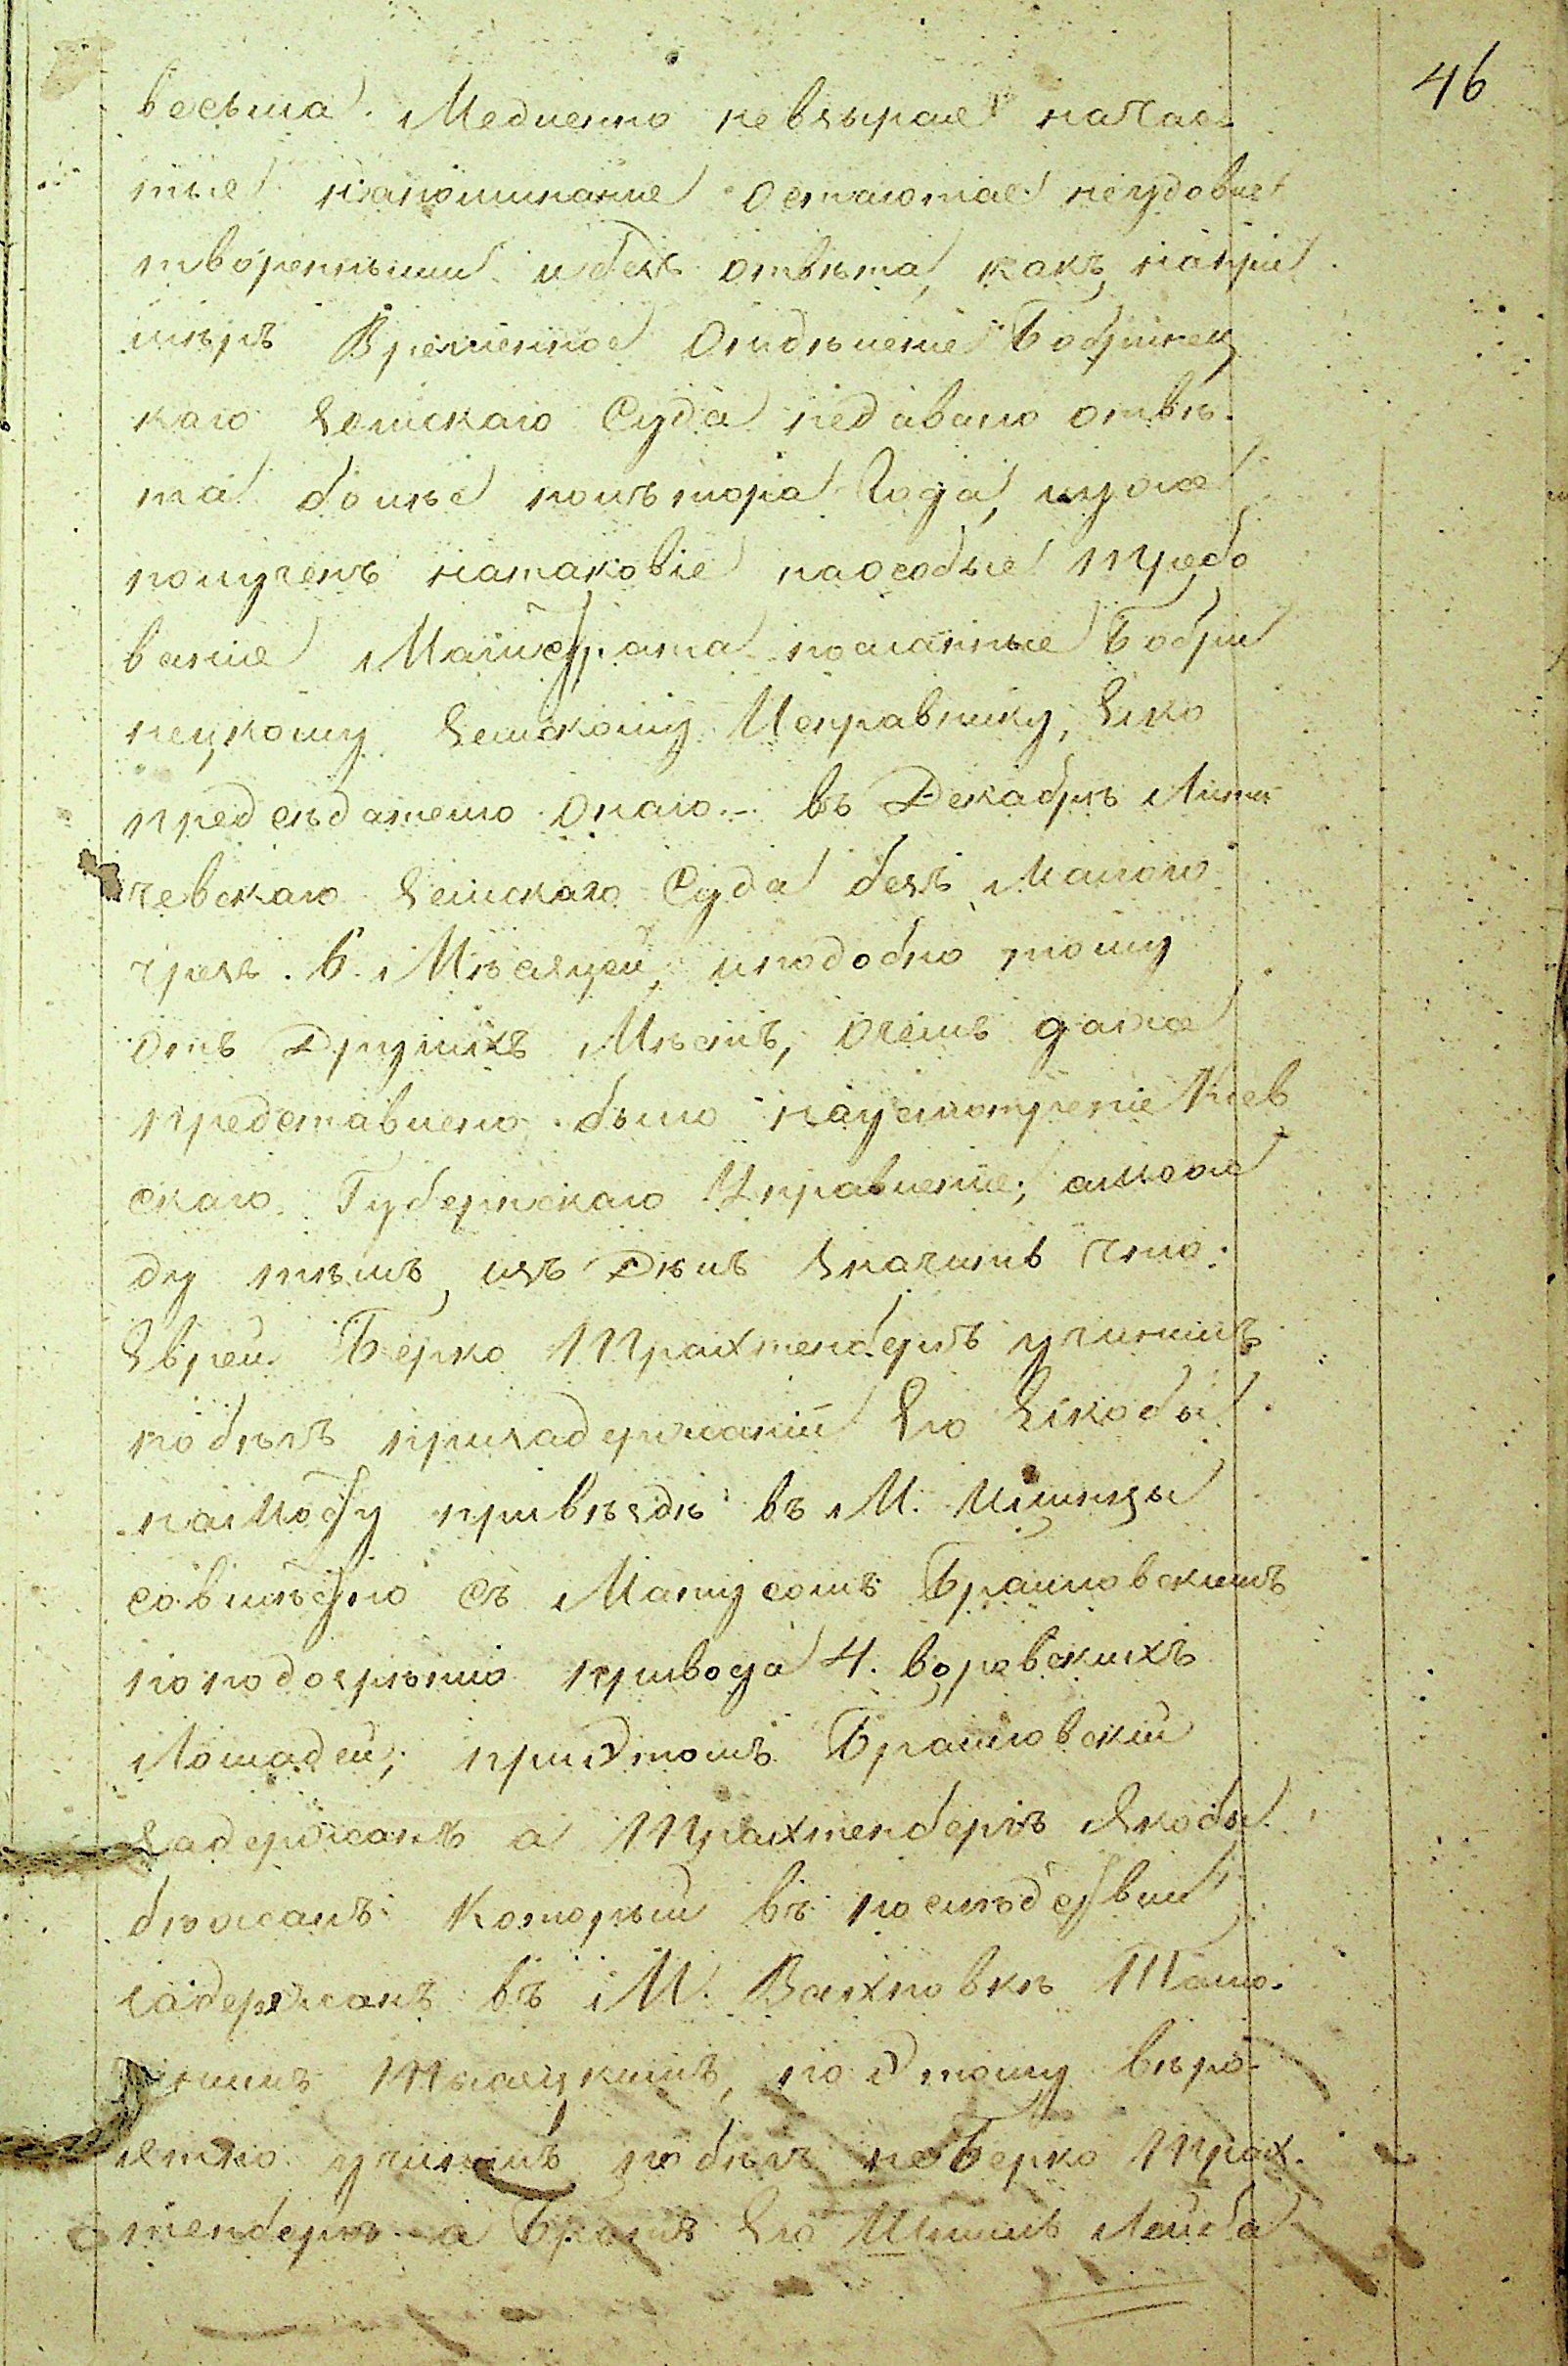 46
весьма Медленно невзырая начас
тые напоминание остаются неудовле
творенными ибезъ отвѣта, какъ напри
мѣръ Временное Отдѣление Бобринец
каго Земскаго Суда недавало отвѣ
та более полътора Года, иуже
полученъ натаковіе наособые требо
вание Магистрата посланные Бобри
нецкому Земскому Исправнику, Яко
предсѣдателю Онаго.- въ Декабрѣ Лити
чевскаго Земскаго Суда безъ малого
чрезъ 6. Мѣсяцей, иподобно тому
отъ Другихъ Мѣстъ, очемъ даже
представлено было наусмотрение Киев
скаго Губернскаго Управление, амеж
ду тѣмъ, изъ Дѣлъ Значитъ что
Еврей Берко Трахтенбергъ учинилъ
побѣгъ призадержании Его Якобы
намосту привѣздѣ въ М. Илинцы
совмѣстно съ Матусомъ Браиловскимъ
поподозрѣнию привода 4. воровскихъ
Лошадей; приэтомъ Браиловский
Задержанъ а Трахтенбергъ Якобы
бѣжалъ Который въ последствии
задержанъ въ М. Вахновкѣ Тамо
шнимъ Тысяцкимъ, поэтому вѣро
ятно учинилъ побѣгъ неБерко Трах
тенбергъ а Братъ Его Шмиль Лейба